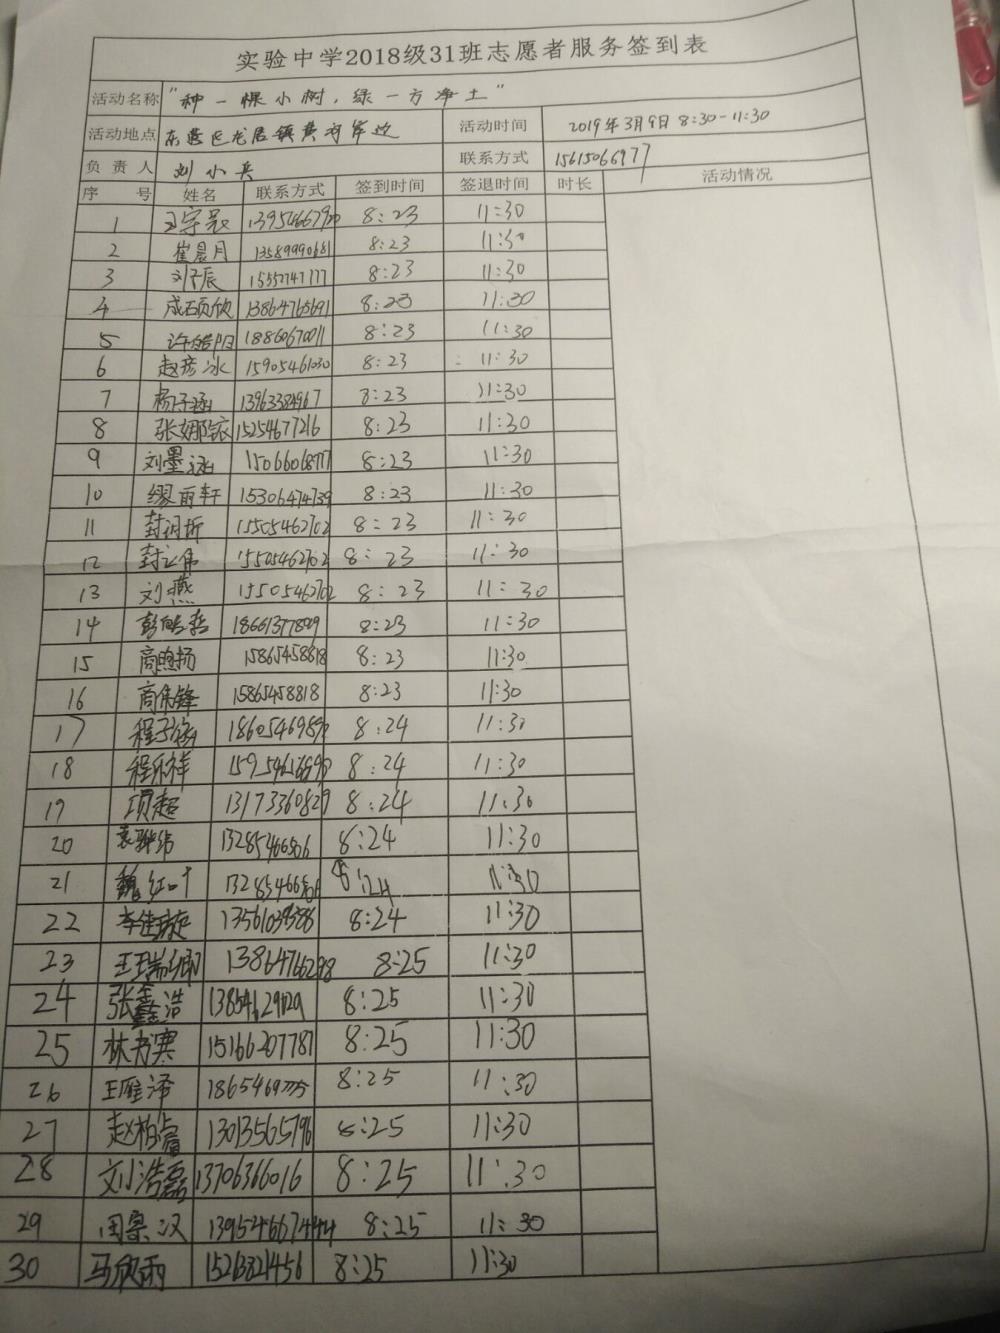 实验中学2018级31班志愿者服务签到表
活动名称 "种一棵小树,绿一方净土"
活动地点 东营区龙居镇黄河岸边 活动时间 2019年3月9日 8:30-11:30
负责人 刘小兵 联系方式 15615066977
序号 姓名 联系方式 签到时间 签退时间 时长 活动情况
1 8:23 11:30
2 崔晨月 13589990681 8:23 11:30
3 刘子辰 15552747777 8:23 11:30
4 成硕欣 13864765691 8:23 11:30
5 许皓阳 18860670011 8:23 11:30
6 赵彦冰 15905461030 8:23 11:30
7 杨子涵 13963384967 8:23 11:30
8 张娜依 15254677216 8:23 11:30
9 刘墨涵 15066068777 8:23 11:30
10 缪雨轩 15306474739 8:23 11:30
11 15505462702 8:23 11:30
12 15505462702 8:23 11:30
13 刘燕 15505462702 8:23 11:30
14 彭皓哲 18661377899 8:23 11:30
15 商煦扬 15865458818 8:23 11:30
16 商伟锋 15865458818 8:23 11:30
17 程子涵 8:24 11:30
18 程乐祥 8:24 11:30
19 项超 13173360829 8:24 11:30
20 13285466506 8:24 11:30
21 魏红叶 13285466506 8:24 11:30
22 李佳璇 13561038388 8:24 11:30
23 王瑞卿 13864766298 8:25 11:30
24 张鑫浩 8:25 11:30
25 林书寒 15166207787 8:25 11:30
26 王雁泽 18654697775 8:25 11:30
27 赵柏睿 13013565796 8:25 11:30
28 刘浩磊 13706366016 8:25 11:30
29 13954667444 8:25 11:30
30 马欣雨 15213821456 8:25 11:30